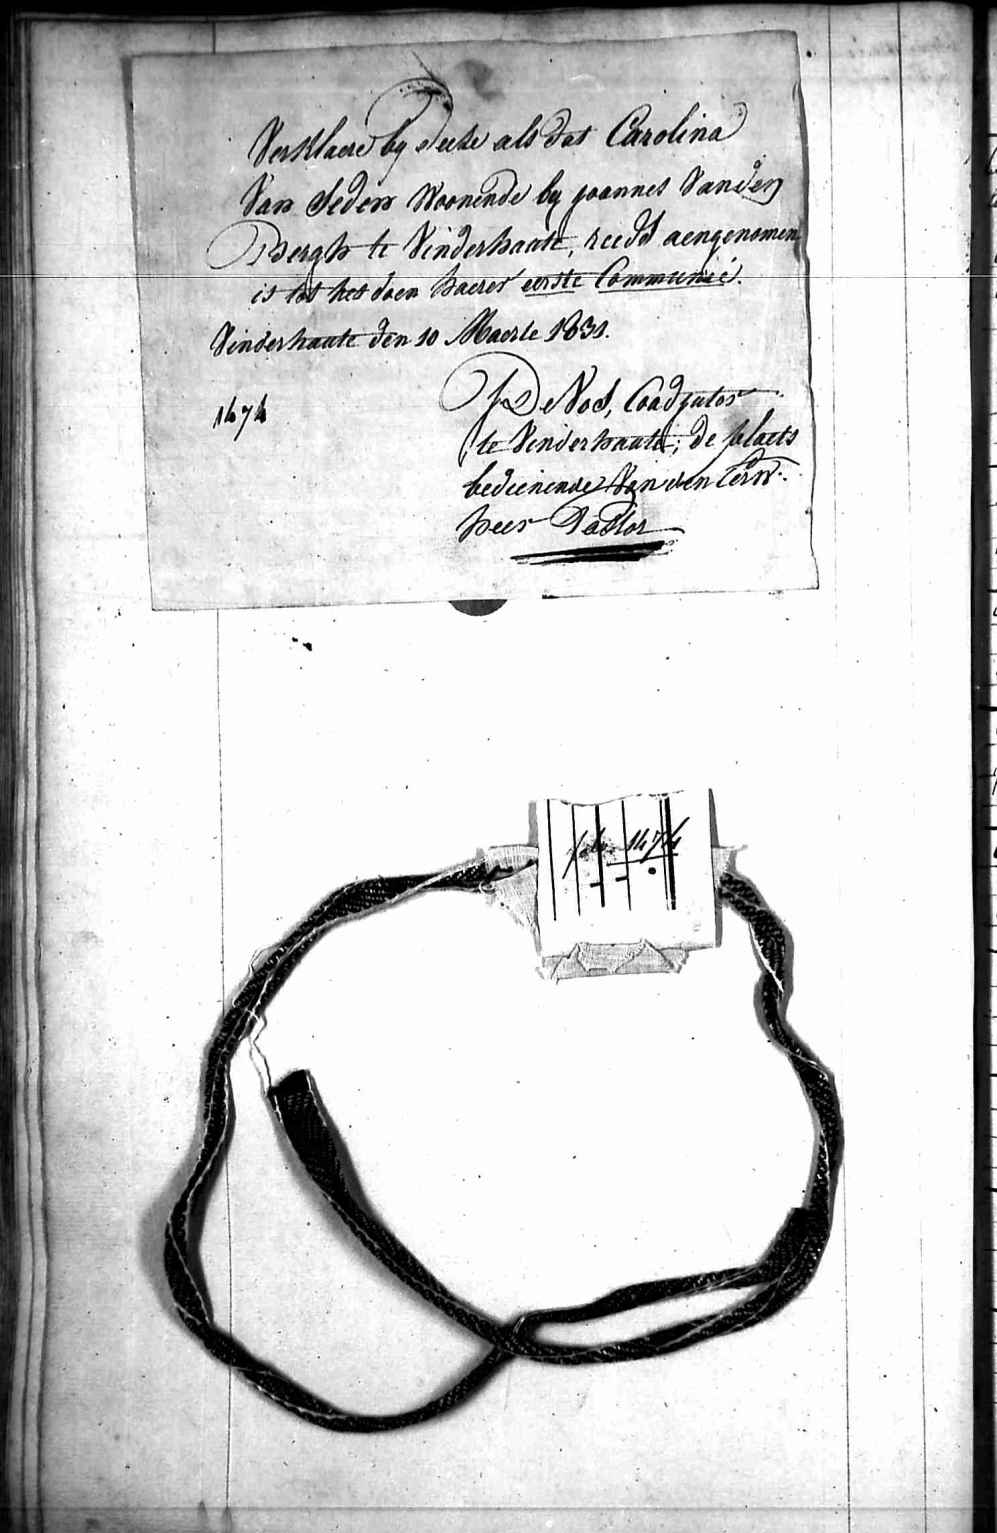 Verklaere by deeze als dat Carolina
Van Seden Woonende by joannes Vanden
Bergh te Vinderhaute, reeds aengenomen
is tot het doen haerer eerste Communie.
Vinderhaute den 10 Maerte 1831.
1474
J De Vos, Coadjutor
te Vinderhaute; de plaets
bedienende Van den Eerw.
heer Pastor
1474